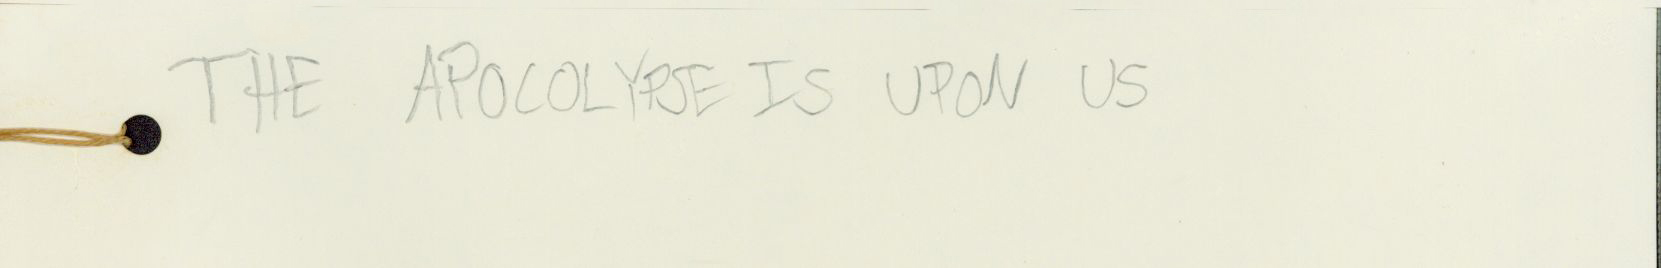 THE APOCOLYPSE IS UPON US